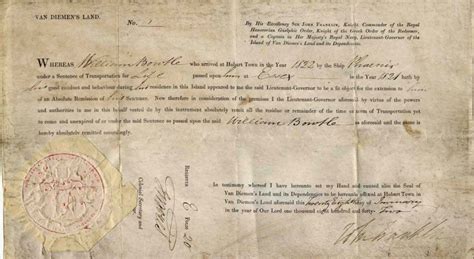 VAN DIEMEN'S LAND.
No. 1
By His Excellency Sir John Franklin, Knight Commander of the Royal
Hanoverian Guelphic Order, Knight of the Greek Order of the Redeemer,
and a Captain in Her Majesty's Royal Navy, Lieutenant-Governor of the
Island of Van Diemen's Land and its Dependencies.
WHEREAS William who arrived at Hobart Town in the Year 1822 by the Ship Phoenix
under a Sentence of Transportation for Life passed upon him at Essex in the Year 1821 hath
by his good conduct and behaviour during his residence in this Island appeared to me the said Lieutenant-Governor to be a fit object for the extension to him
of an Absolute Remission of his Sentence Now therefore in consideration of the premises I the Lieutenant-Governor aforesaid by virtue of the powers
and authorities to me in this behalf granted do by this instrument absolutely remit all the residue or remainder of the time or term of Transportation yet
to come and unexpired of or under the said Sentence so passed upon the said William as aforesaid and the same is
hereby absolutely remitted accordingly.
In testimony whereof I have hereunto set my Hand and caused the Seal of
Van Diemen's Land and its Dependencies to be hereunto affixed at Hobart Town
in Van Diemen's Land aforesaid this day of January in the
year of Our Lord one thousand eight hundred and forty-Two
Register C From 20
Colonial Secretary and